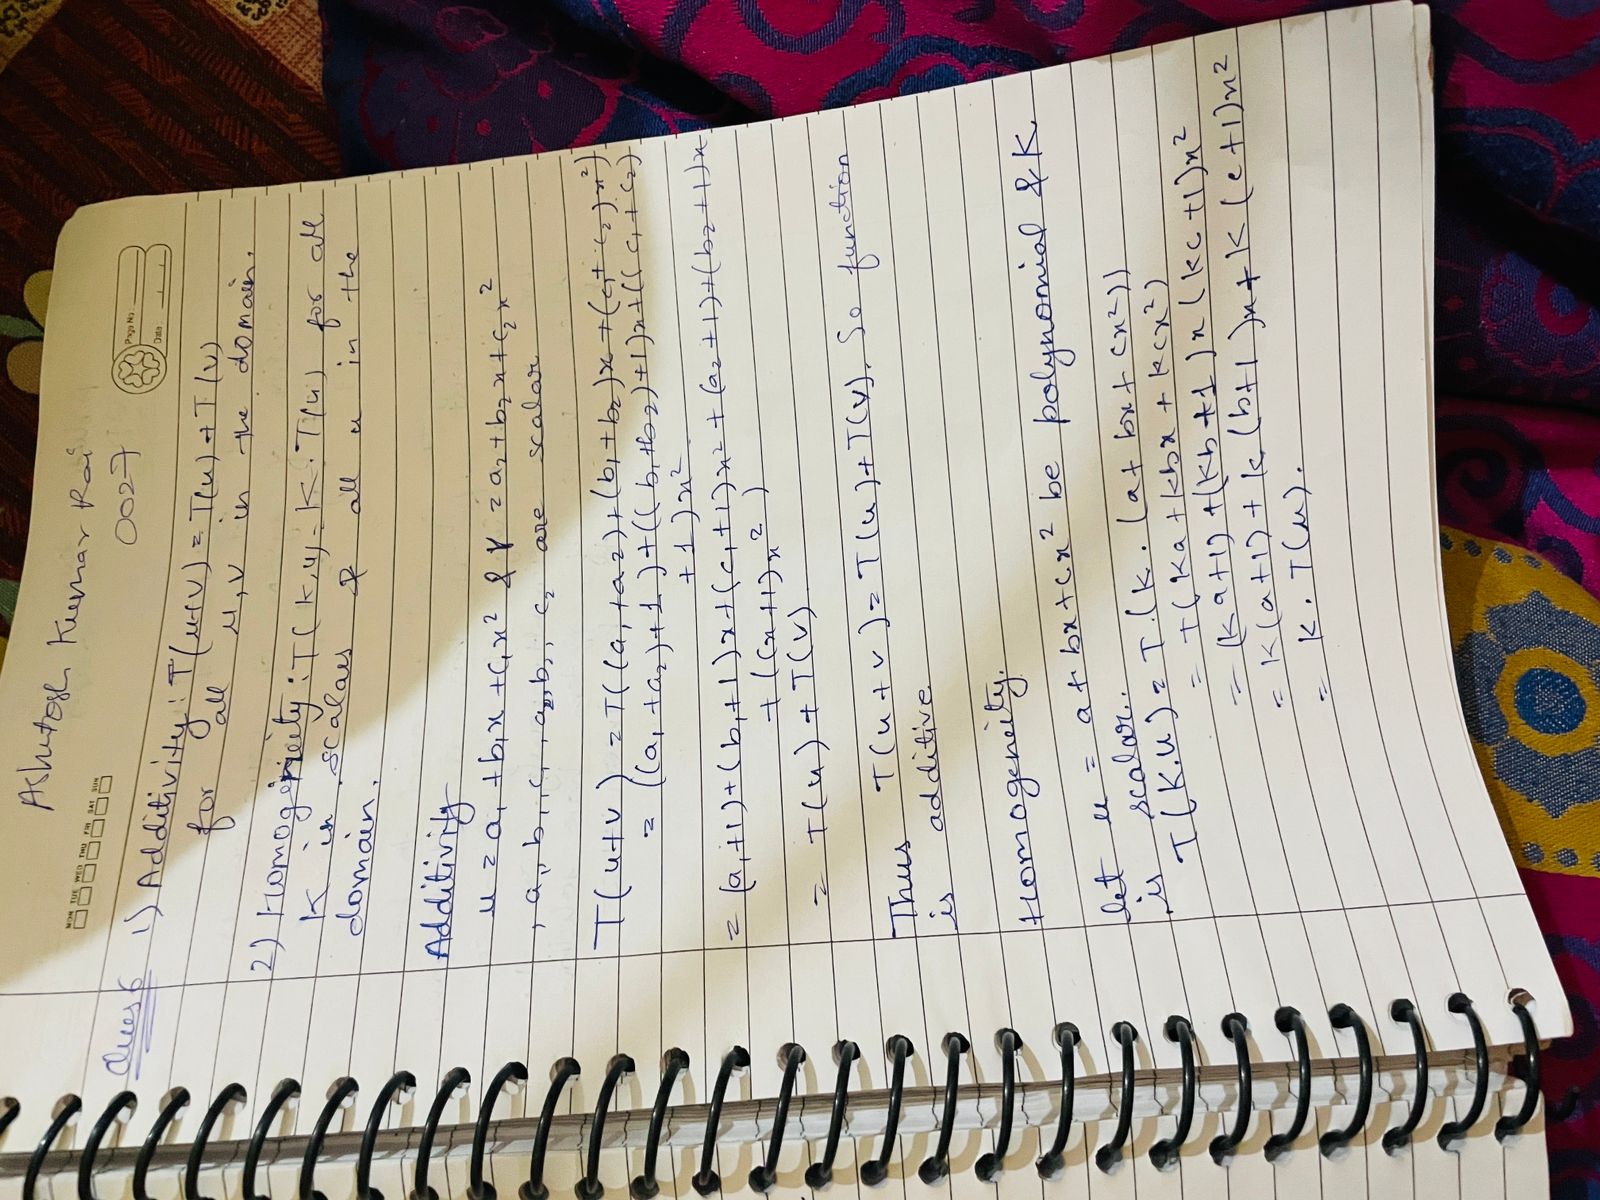 Ashutosh Kumar Rai
0027
Page No.
Date
MON TUE WED THU FRI SAT SUN
Ques 6 1) Additivity: T(u+v) = T(u) + T(v)
for all u, v in the domain.
2) Homogeneity: T(k,u) = K.T(u) for all
K in scalars & all u in the
domain.
Additivity
u = a₁ + b₁x + c₁x² & v = a₂ + b₂x + c₂x²
, a₁, b₁, c₁, a₂, b₂, c₂ are scalar
T(u+v) = T((a₁+a₂) + (b₁+b₂)x + (c₁+c₂)x²)
= ((a₁+a₂)+1) + ((b₁+b₂)+1)x + ((c₁+c₂)
+1)x²
= (a₁+1) + (b₁+1)x + (c₁+1)x² + (a₂+1) + (b₂+1)x
+ ((x+1)x²)
= T(u) + T(v)
Thus T(u+v) = T(u) + T(v). So function
is additive
Homogeneity.
let u = a + bx + cx² be polynomial & K
is scalar.
T(K.u) = T.(K.(a + bx + cx²))
= T(Ka + kbx + kcx²)
= (Ka+1) + (Kb+1)x(kc+1)x²
= K(a+1) + k(b+1)x + K(c+1)x²
= K.T(u).